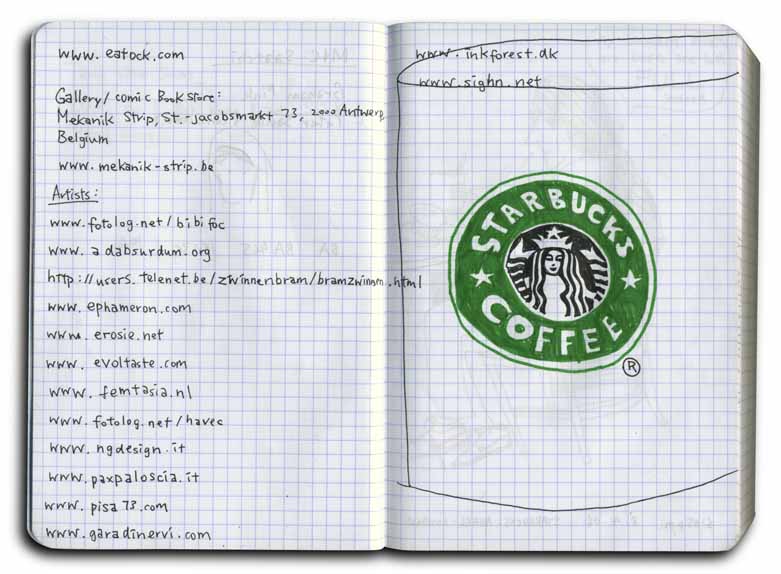 www. eatock.com
Gallery/comic Bookstore:
Mekanik Strip, St.-jacobsmarkt 73, 2000 Antwerp,
Belgium
www.mekanik-strip.be
Artists:
www.fotolog.net/bibifoc
www.adabsurdum.org
http://users.telenet.be/zwinnenbram/bramzwinnn.html
www.ephameron.com
www.erosie.net
www.evoltaste.com
www.femtasia.nl
www.fotolog.net/havec
www.ngdesign.it
www.paxpaloscia.it
www.pisa73.com
www.garadinervi.com
www.inkforest.dk
www.sighn.net
STARBUCKS
COFFEE
®